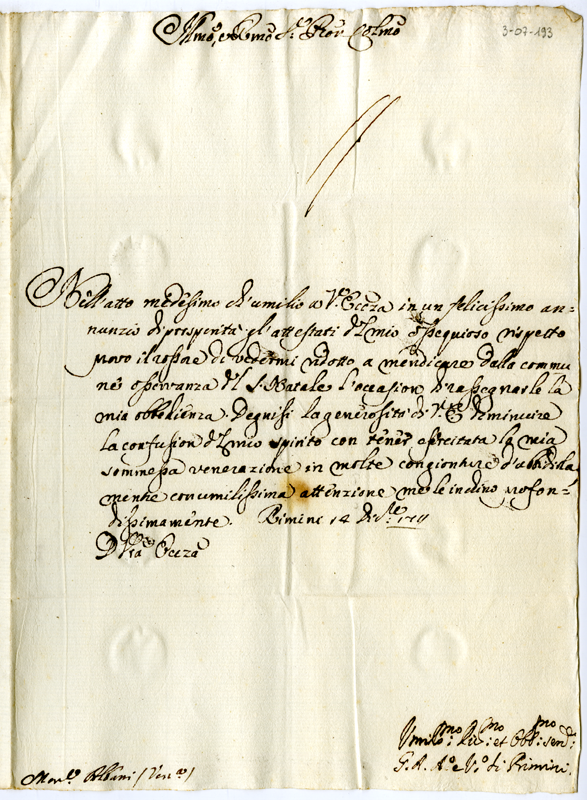 3-07-193
Illmo, e Rmo Sr. Pron Colmo
Nell'atto medesimo ch'umilio a V. Eccza in un felicissimo an-
nunzio di prosperità gl'attestati del mio ossequioso rispetto
provo il rossore di vedermi ridotto a mendicare dalla commu
ne osservanza del S. Natale l'occasion di rassegnarle la
mia obbedienza. Degnisi la generosità di V. E. diminuire
la confusion del mio spirito con tener esercitata la mia
sommessa venerazione in molte congionture d'ubbidirla
mentre con umilissima attenzione me le inchino profon-
dissimamente. Rimino 14 Dic
D. Vra Eccza
Umilmo Divmo et Obbmo
G. A. Ao e Vo di Rimini
Albani